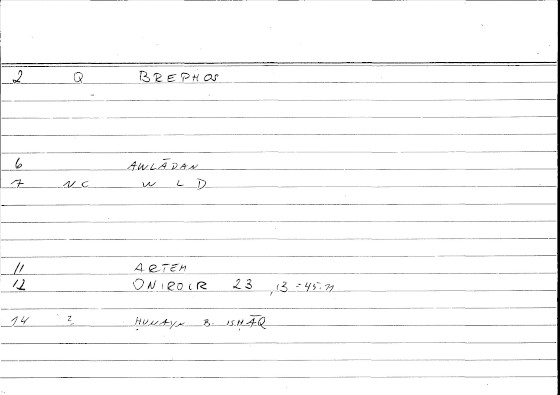 2 Q BREPHOS
6 AWLĀDAN
7 NC W L D
11 ARTEM
12 ONIROIR 23 ,13 = 45.11
14 2 ḤUNAYN B. ISḤĀQ